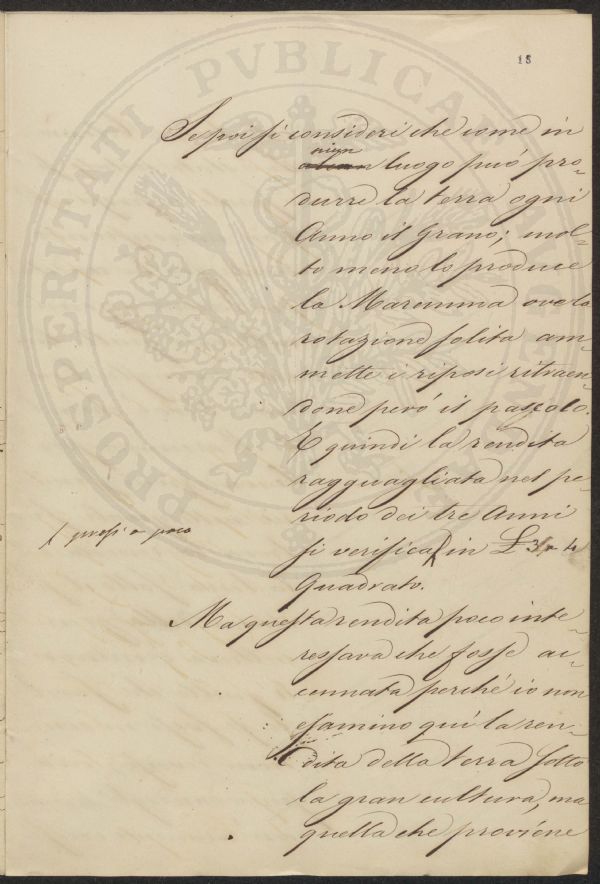 18
Se poi si consideri che come in
niun
alcun luogo può pro-
durre la terra ogni
Anno il Grano; mol-
to meno lo produce
la Maremma ove la
rotazione solita am-
mette i riposi ritraen-
done però il pascolo.
E quindi la rendita
ragguagliata nel pe-
riodo dei tre Anni
si verifica in £ 3
Quadrato.
presso a poco
Ma questa rendita poco inte-
ressava che fosse ac-
cennata perché io non
esamino quì la ren-
dita della terra sotto
la gran cultura, ma
quella che proviene
PROSPERITATI PVBLICAE AVGENDAE